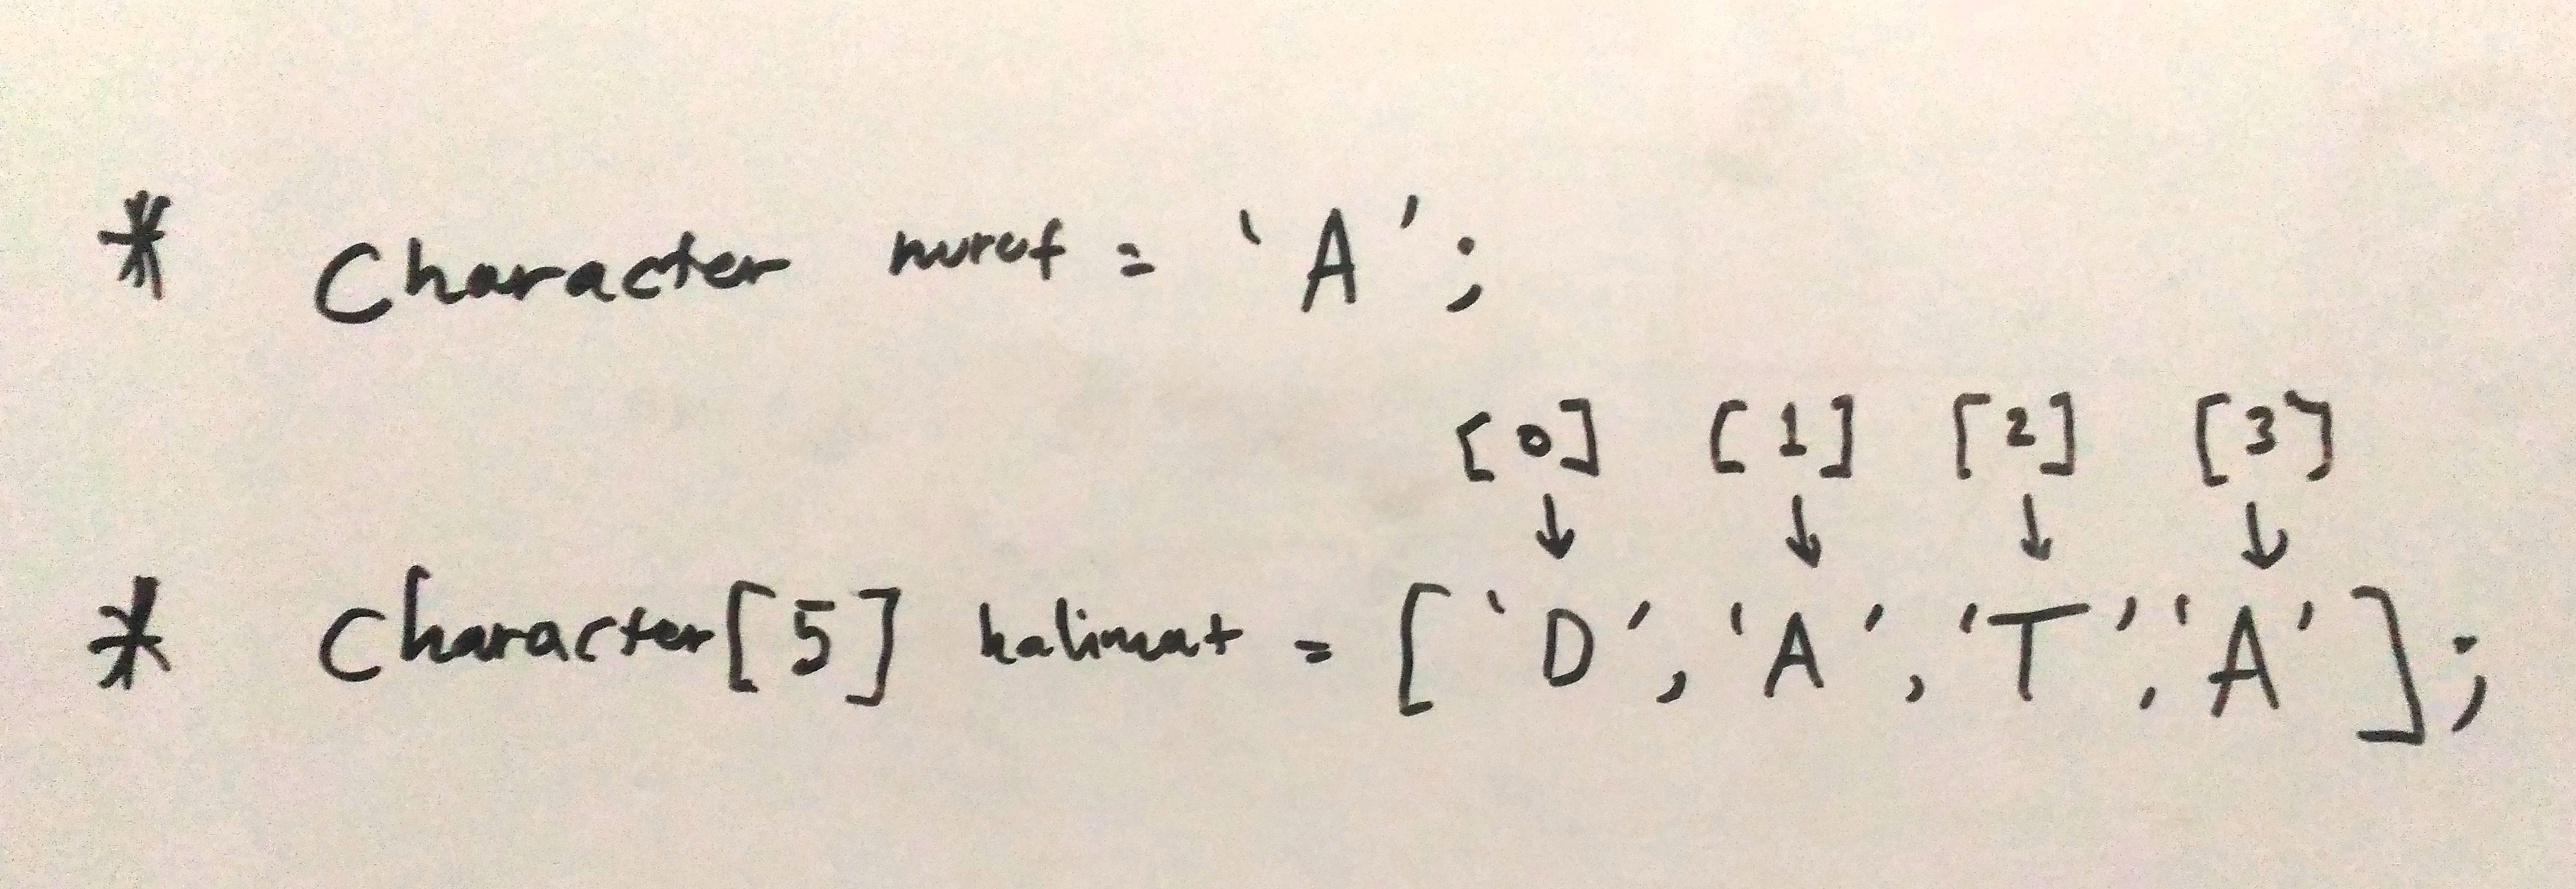 * Character huruf = 'A';
[0] [1] [2] [3]
↓ ↓ ↓ ↓
* Character[5] kalimat = ['D', 'A', 'T', 'A'];